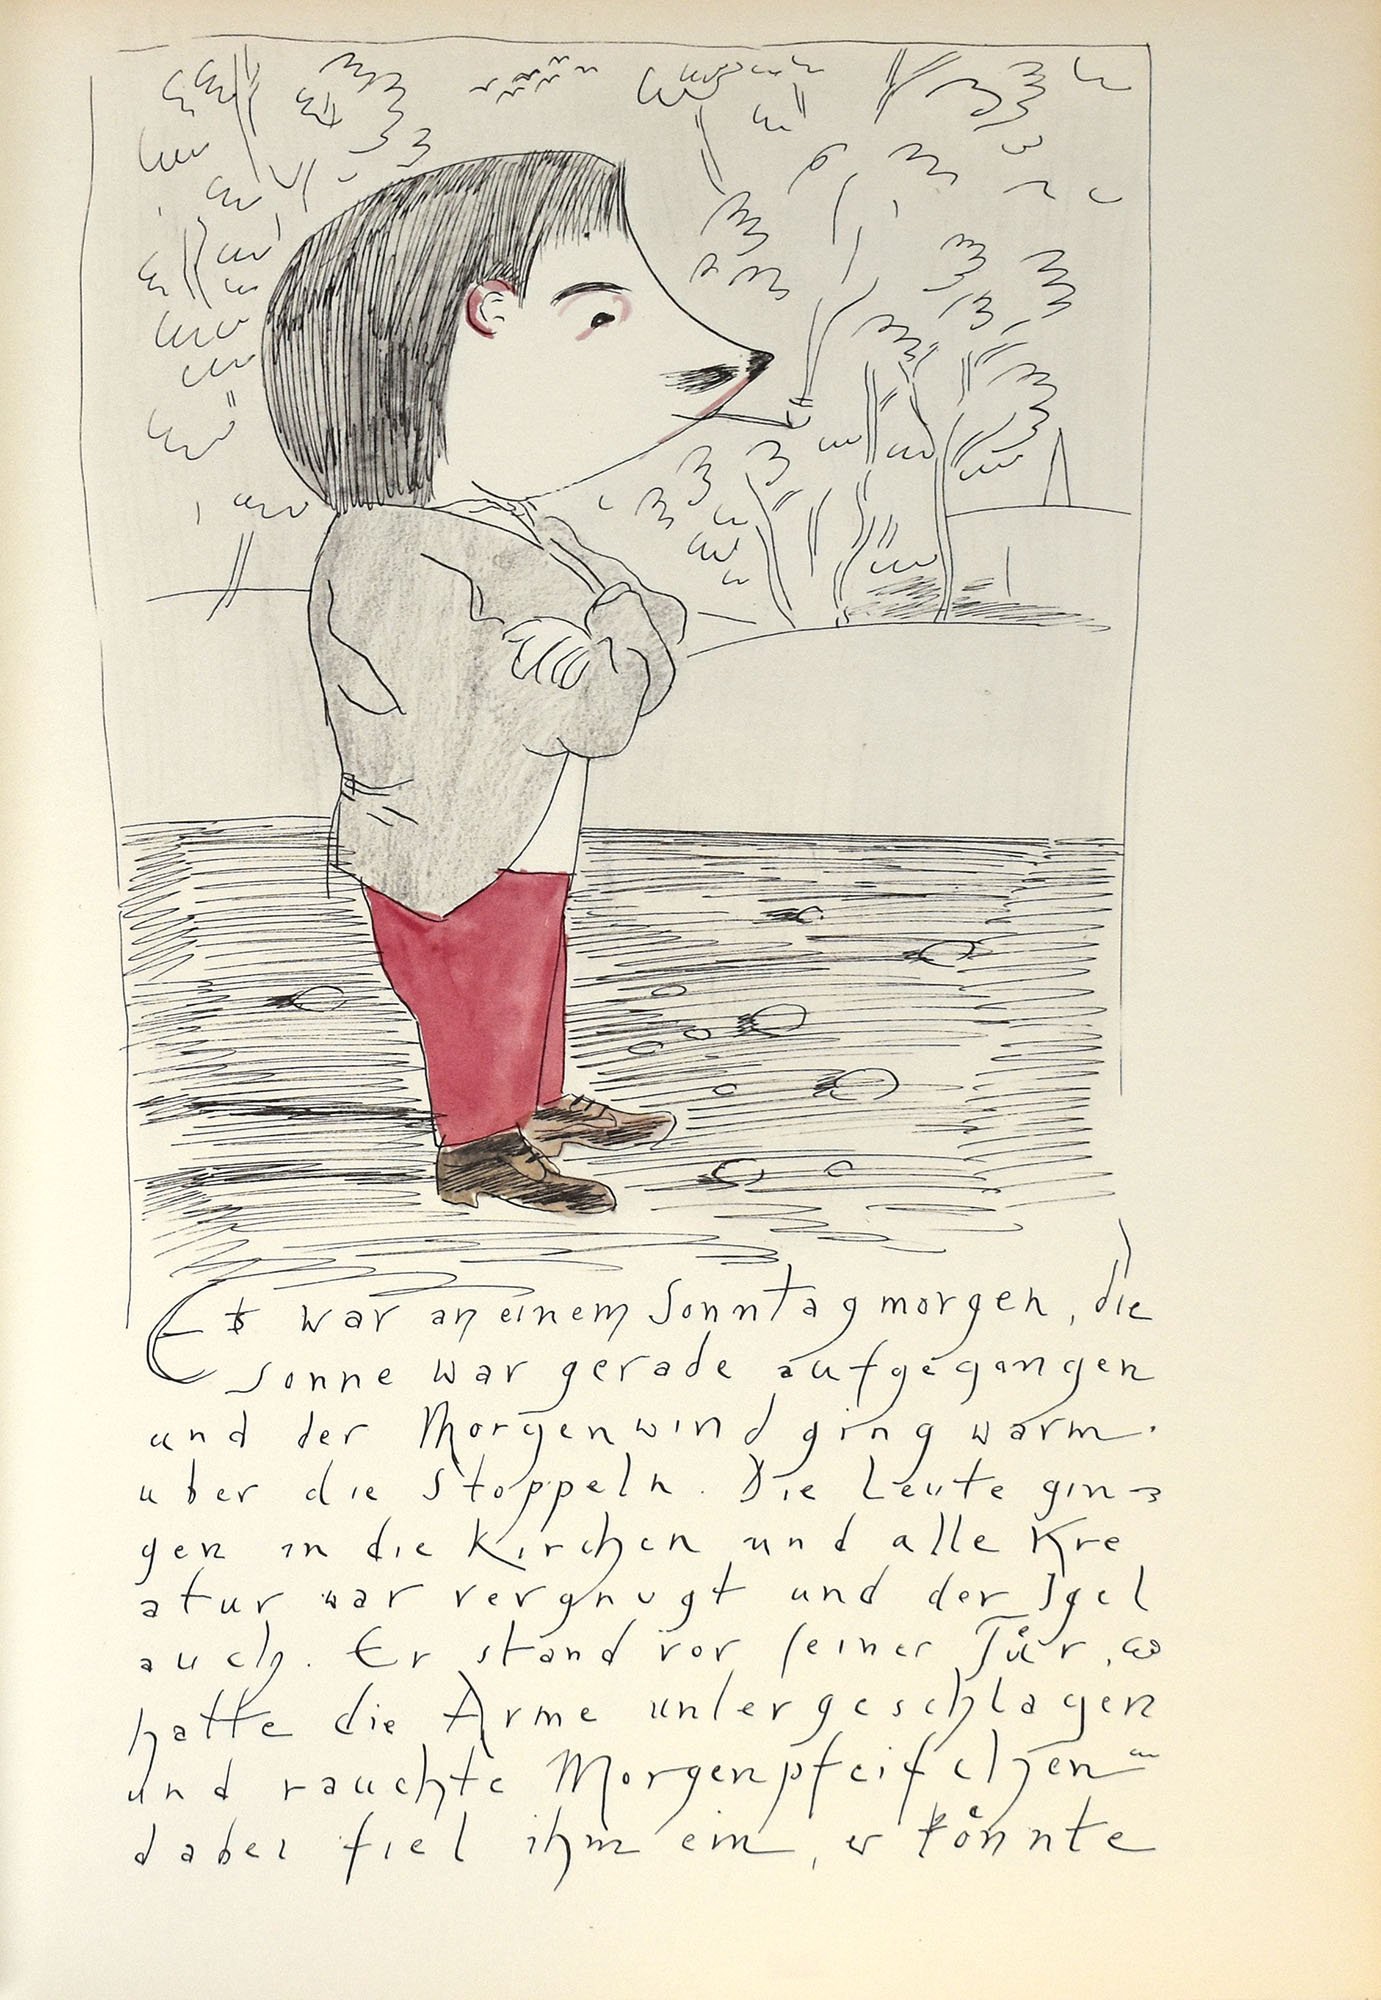 Es war an einem Sonntagmorgen, die
Sonne war gerade aufgegangen
und der Morgenwind ging warm
uber die Stoppeln. Die Leute gin-
gen in die Kirchen und alle Kre
atur war vergnugt und der Igel
auch. Er stand vor seiner Tür,
hatte die Arme untergeschlagen
und rauchte Morgenpfeifchen
dabei fiel ihm ein, er könnte